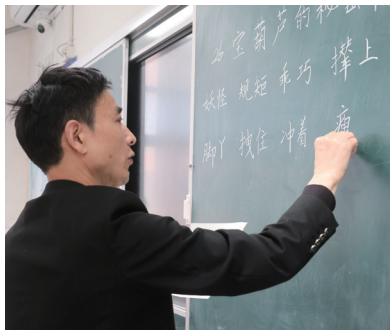 26 宝葫芦的秘密
妖怪 规矩 乖巧 撵上
脚丫 拽住 冲着 痛